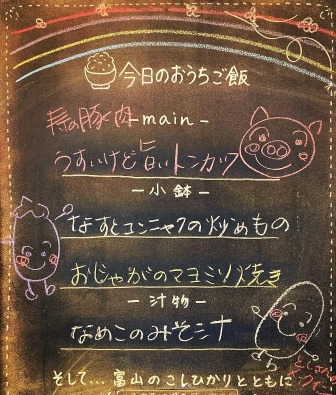 今日のおうちご飯
寿の豚肉 -main-
うすいけど旨いトンカツ
-小鉢-
なすとコンニャクの炒めもの
おじゃがのマヨミソ焼き
-汁物-
なめこのみそ汁
そして…富山のこしひかりとともに